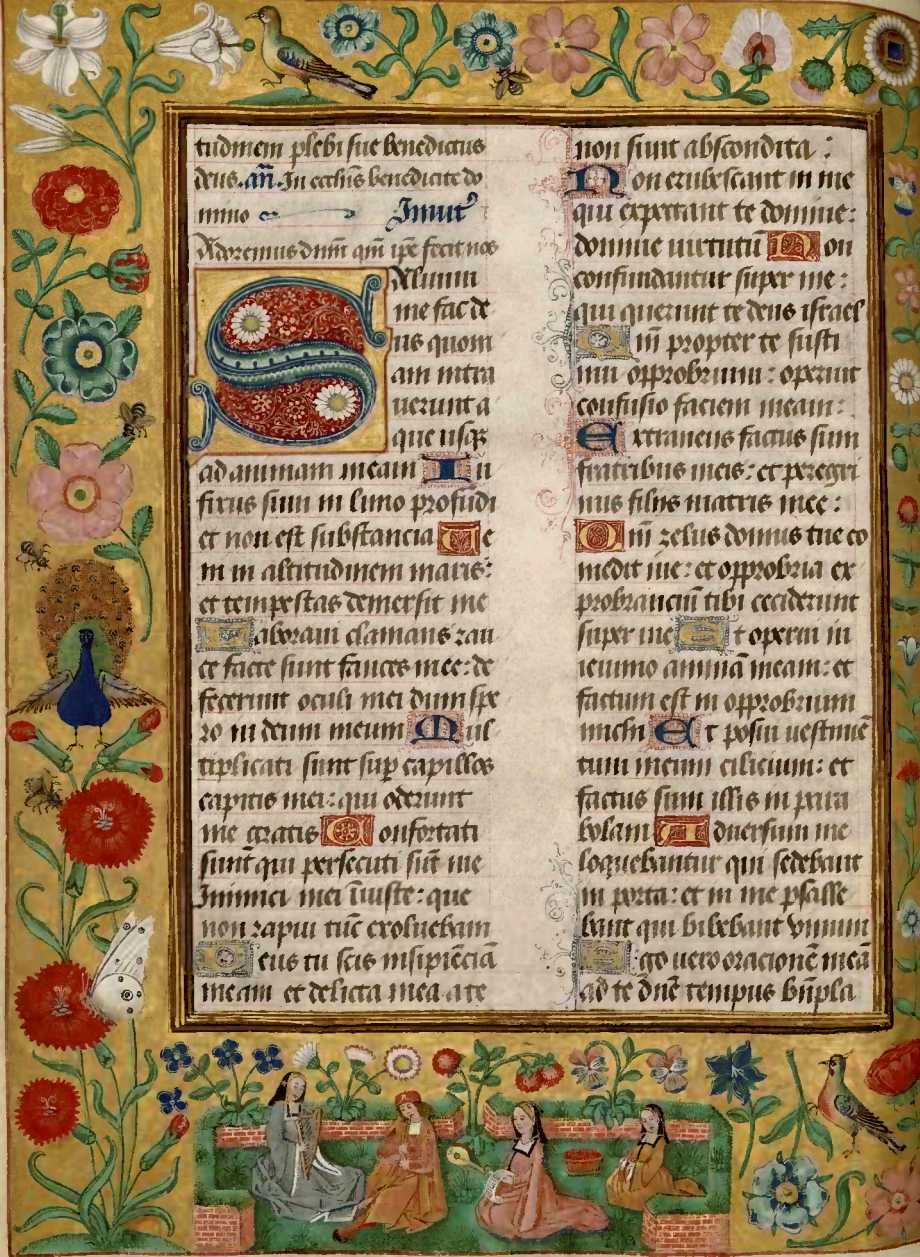 tudinem plebi sue benedictus
deus. an̄. In ecclīis benedicite do
mino Inuit
Adoremus dnm̄ qm̄ ip̄e fecit nos
Saluum
me fac de
us quoni
am intra
uerunt a
que usqꝫ
ad animam meam In
fixus sum in limo profūdi
et non est substancia Ve
ni in altitudinem maris:
et tempestas demersit me
Laboraui clamans rau
ce facte sunt fauces mee: de
fecerunt oculi mei dum spe
ro in deum meum Mul
tiplicati sunt suꝑ capillos
capitis mei: qui oderunt
me gratis Confortati
sunt qui persecuti sūt me
Inimici mei īiuste: que
non rapui tūc exoluebam
Deus tu scis insipiēciā
meam et delicta mea a te
non sunt abscondita:
Non erubescant in me
qui expectant te domine:
domine uirtutū Non
confundantur super me:
qui querunt te deus israel
Qm̄ propter te susti
nui opprobrium: operuit
confusio faciem meam:
Extraneus factus sum
fratribus meis: et peregri
nus filiis matris mee:
Qm̄ zelus domus tue co
medit me: et opprobria ex
probranciū tibi ceciderunt
super me Et operui in
ieiunio animā meam: et
factum est in opprobrium
michi Et posui uestimē
tum meum cilicium: et
factus sum illis in para
bolam Aduersum me
loquebantur qui sedebant
in porta: et in me psalle
bant qui bibebant vinum
Ego uero oracionē meā
ad te dn̄e tempus bn̄pla